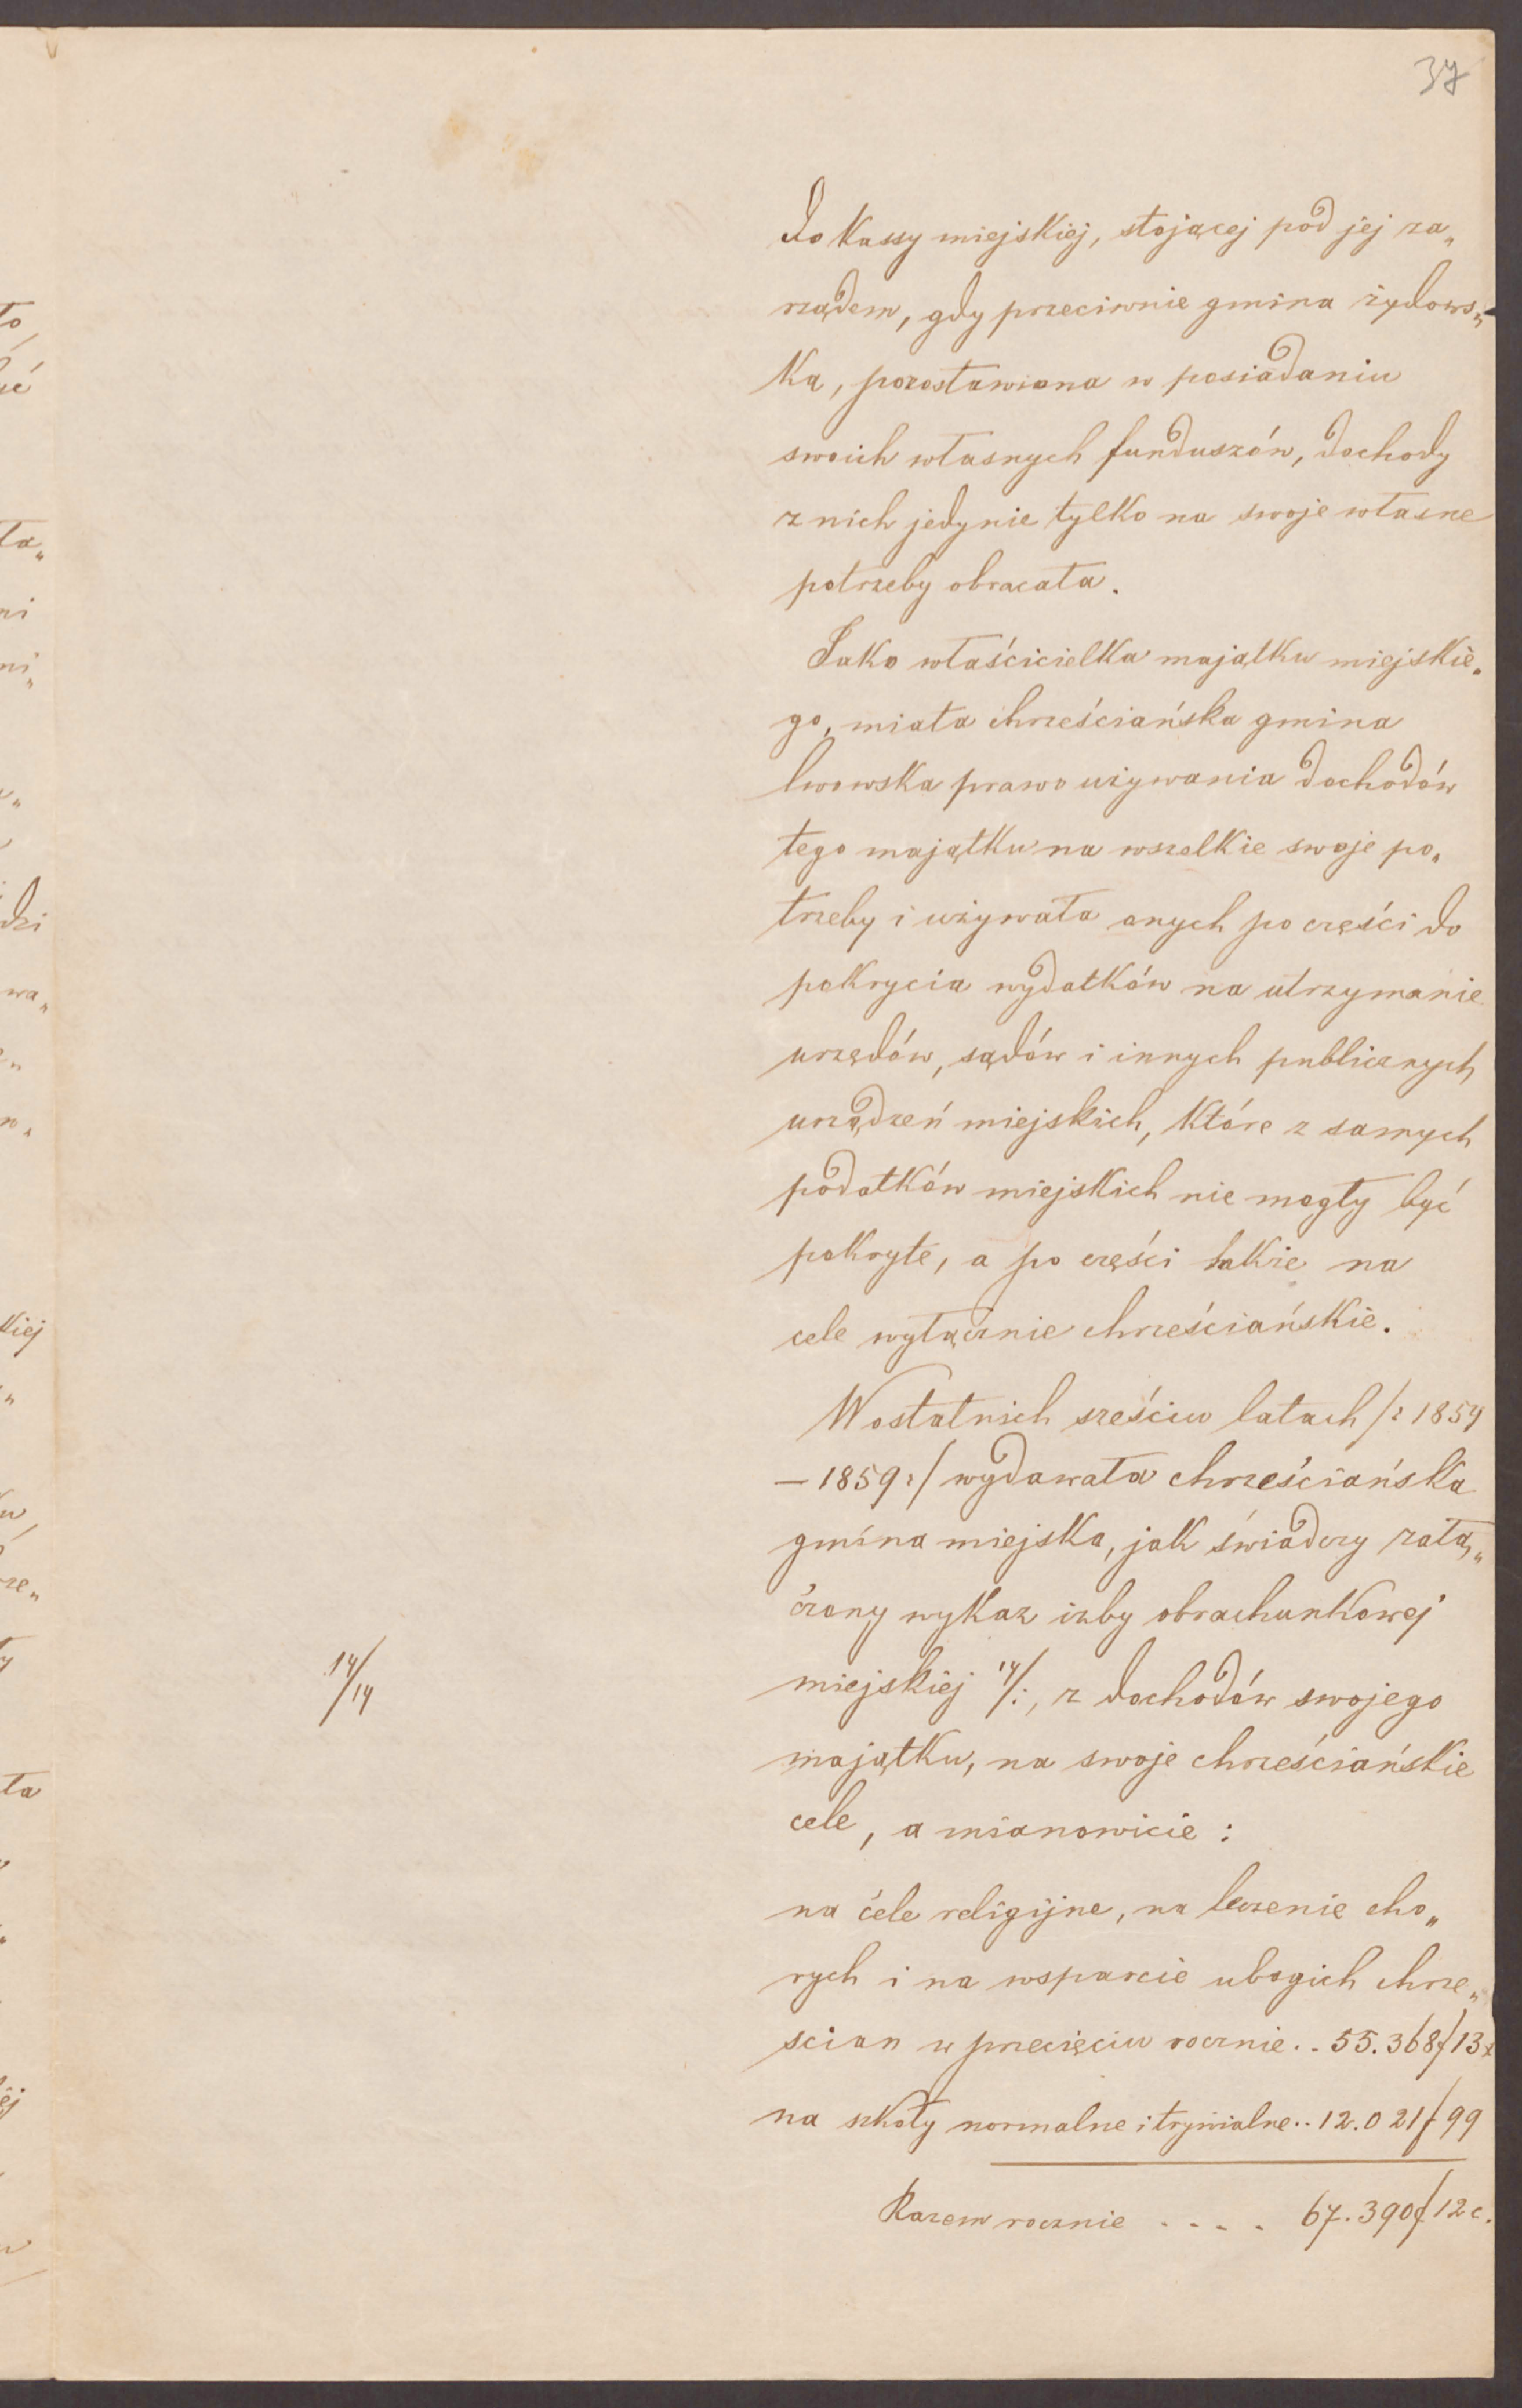 37
do Kassy miejskiej, stojącej pod jej za„
rządem, gdy przeciwnie gmina żydows„
ka, pozostawiona w posiadaniu
swoich własnych funduszów, dochody
z nich jedynie tylko na swoje własne
potrzeby obracała.
Jako właścicielka majątku miejskie„
go, miała chrześciańska gmina
lwowska prawo używania dochodów
tego majątku na wszelkie swoje po„
trzeby i używała onych po części do
pokrycia wydatków na utrzymanie
urzędów, sądów i innych publicznych
urządzeń miejskich, które z samych
podatków miejskich nie mogły być
pokryte, a po części także na
cele wyłącznie chrześciańskie.
W ostatnich sześciu latach /: 1854
— 1859 :/ wydawała chrześciańska
gmina miejska, jak świadczy załą„
czony wykaz izby obrachunkowej
miejskiej 14/:, z dochodów swojego
14/14
majątku, na swoje chrześciańskie
cele, a mianowicie :
na cele religijne, na leczenie cho„
rych i na wsparcie ubogich chrze„
scian w przecięciu rocznie .. 55.368f 13
na szkoły normalne i trywialne .. 12.021f 99
Razem rocznie .... 67.390f 12 c.